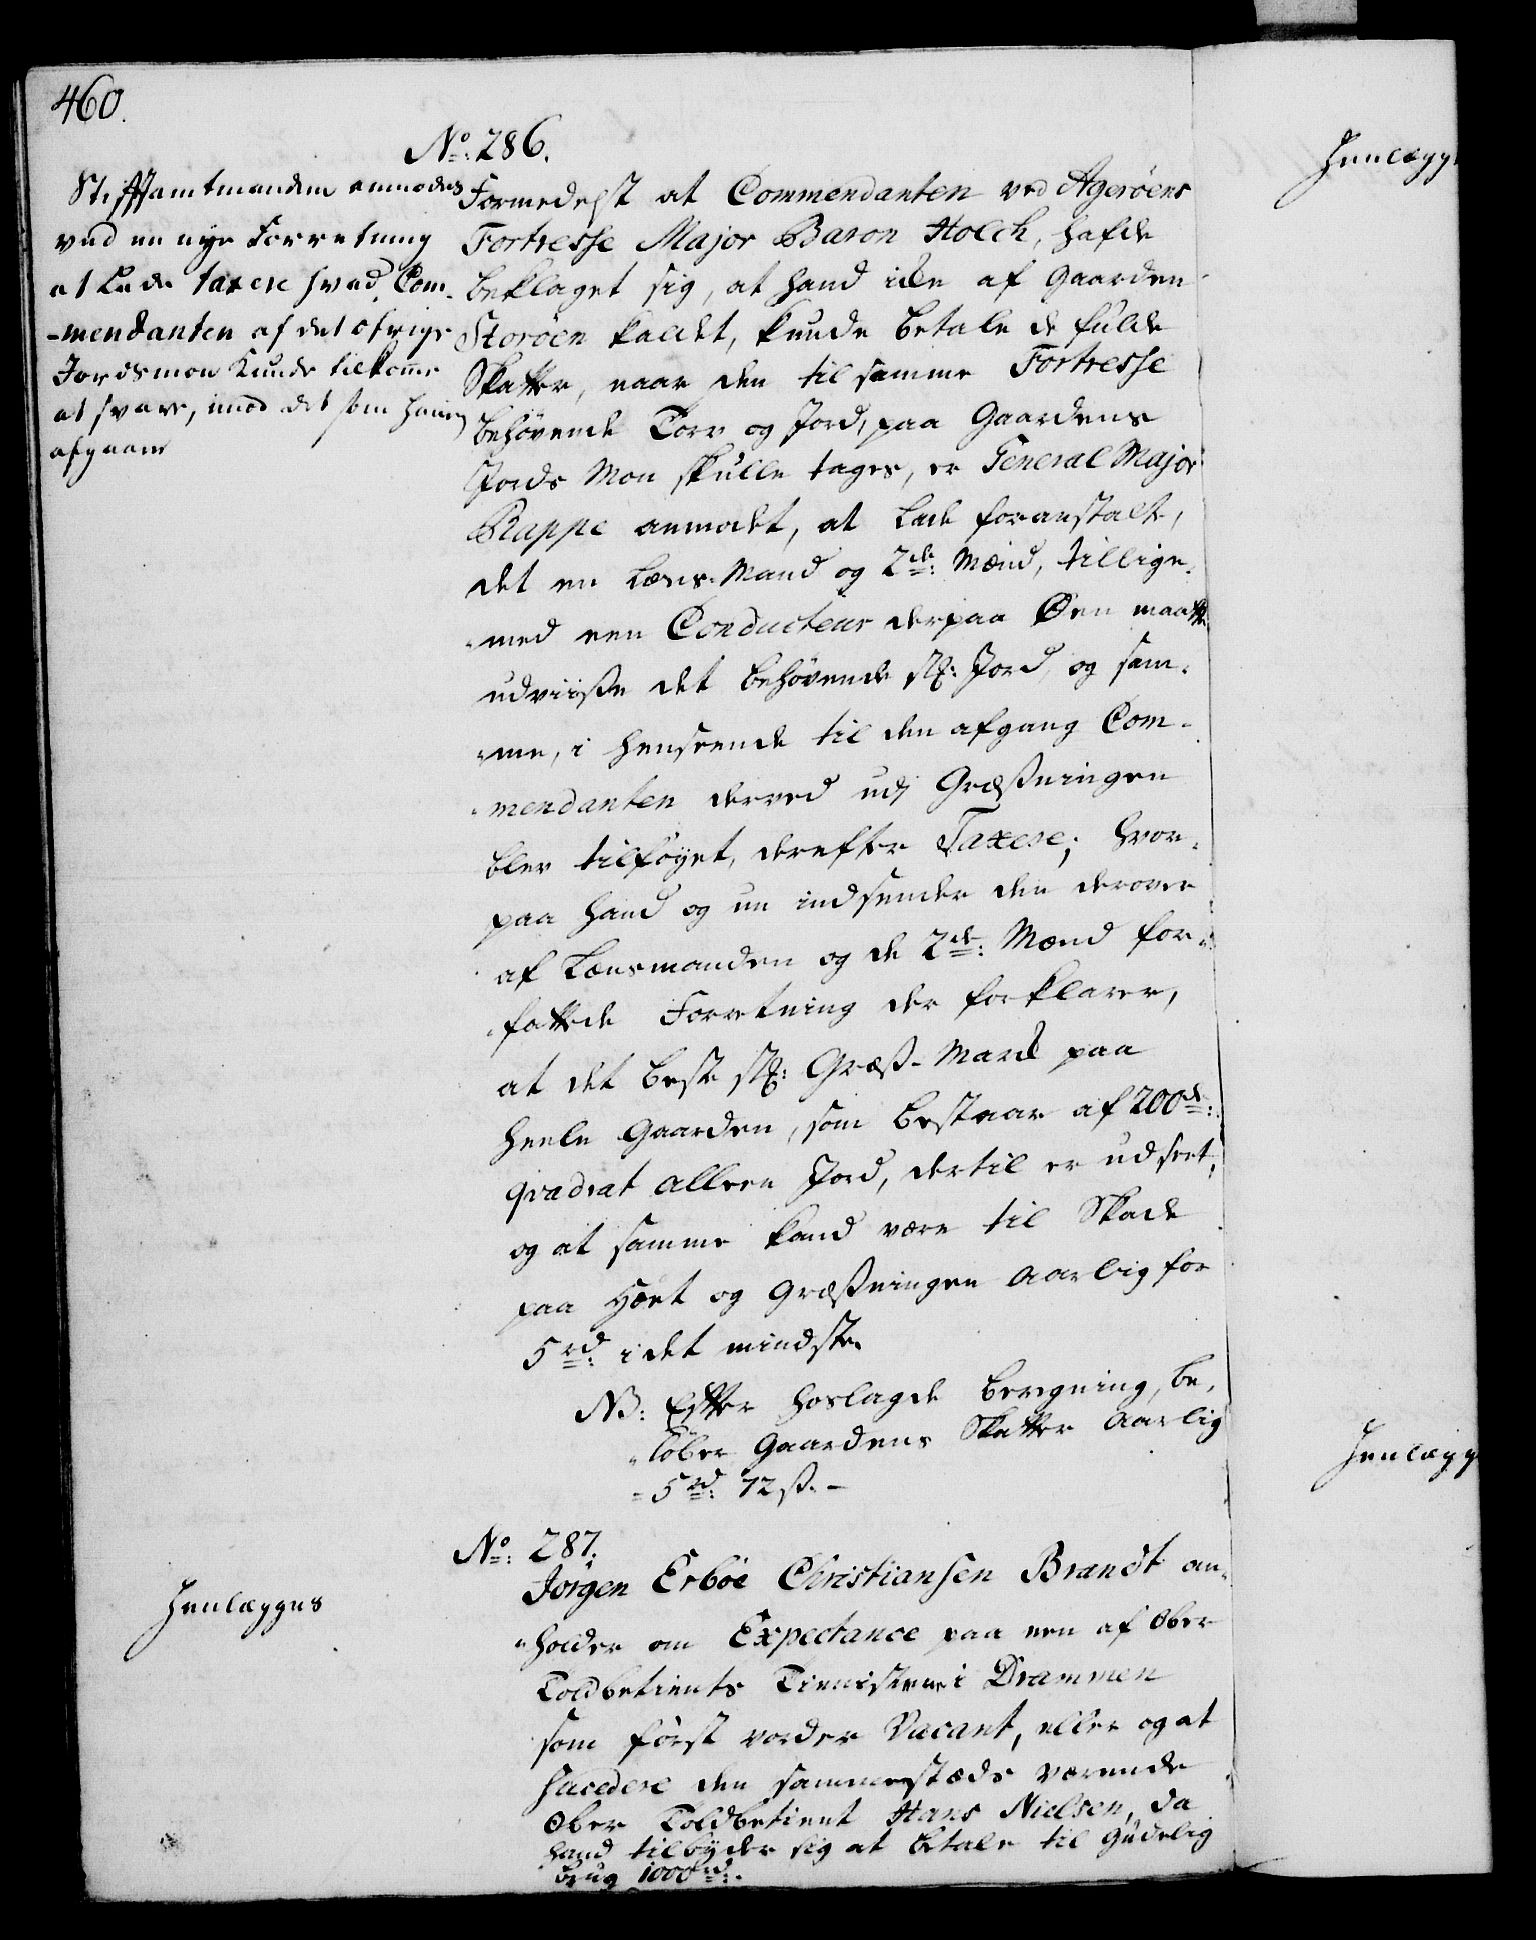 460.
No: 286.
Stiftamtmanden anmodes
ved en nye Forretning
at lade taxere hvad Com-
-mendanten af det øfrige
Jordsmon kunde tilkomme
at svare, imod det som ham
afgaaer
Formedelst at Commendanten ved Agerøens
Fortresse Major Baron Holck, hafde
beklaget sig, at hand icke af Gaarden
Storøen kaldet, kunde betale de fulde
Skatter, naar den til samme Fortresse
behøvende Torv og Jord, paa Gaardens
Jords Mon skulle tages, er General Major
Rappe anmodet, at lade foranstalte,
det en Lens-Mand og 2de: Mænd, tillige-
-med een Conducteur derpaa Øen maatte
udviisse det behøvende st: Jord, og sam-
-me, i henseende til den afgang Com-
-mendanten derved udj Græsningen
blev tilføyet, derefter Taxere; hvor-
paa hand og nu indsender den derover
af Lensmanden og de 2de: Mænd for-
-fattede Forretning der forklarer,
at det beste st: Græs-Marck paa
heele Gaarden, som bestaar af 200de:
qvadrat Alleen Jord, dertil er udseet,
og at samme kand være til Skade
paa Høet og Græsningen Aarlig for
5 rd: i det mindste.
NB: Efter hoslagde Beregning, be-
-løber Gaardens Skatter Aarlig
-5 rd: 72 ß. -
No: 287.
Henlægges
Jørgen Erboe Christiansen Brandt an-
-holder om Expectance paa een af Ober
Toldbetients Tienisterne i Drammen
som først vorder Vacant, eller og at
Succedere den sammestæds værende
Ober Toldbetient Hans Nielsen, da
hand tilbyder sig at betale til Gudelig
Brug 1000 rd:.
Henlægg
Henlægg